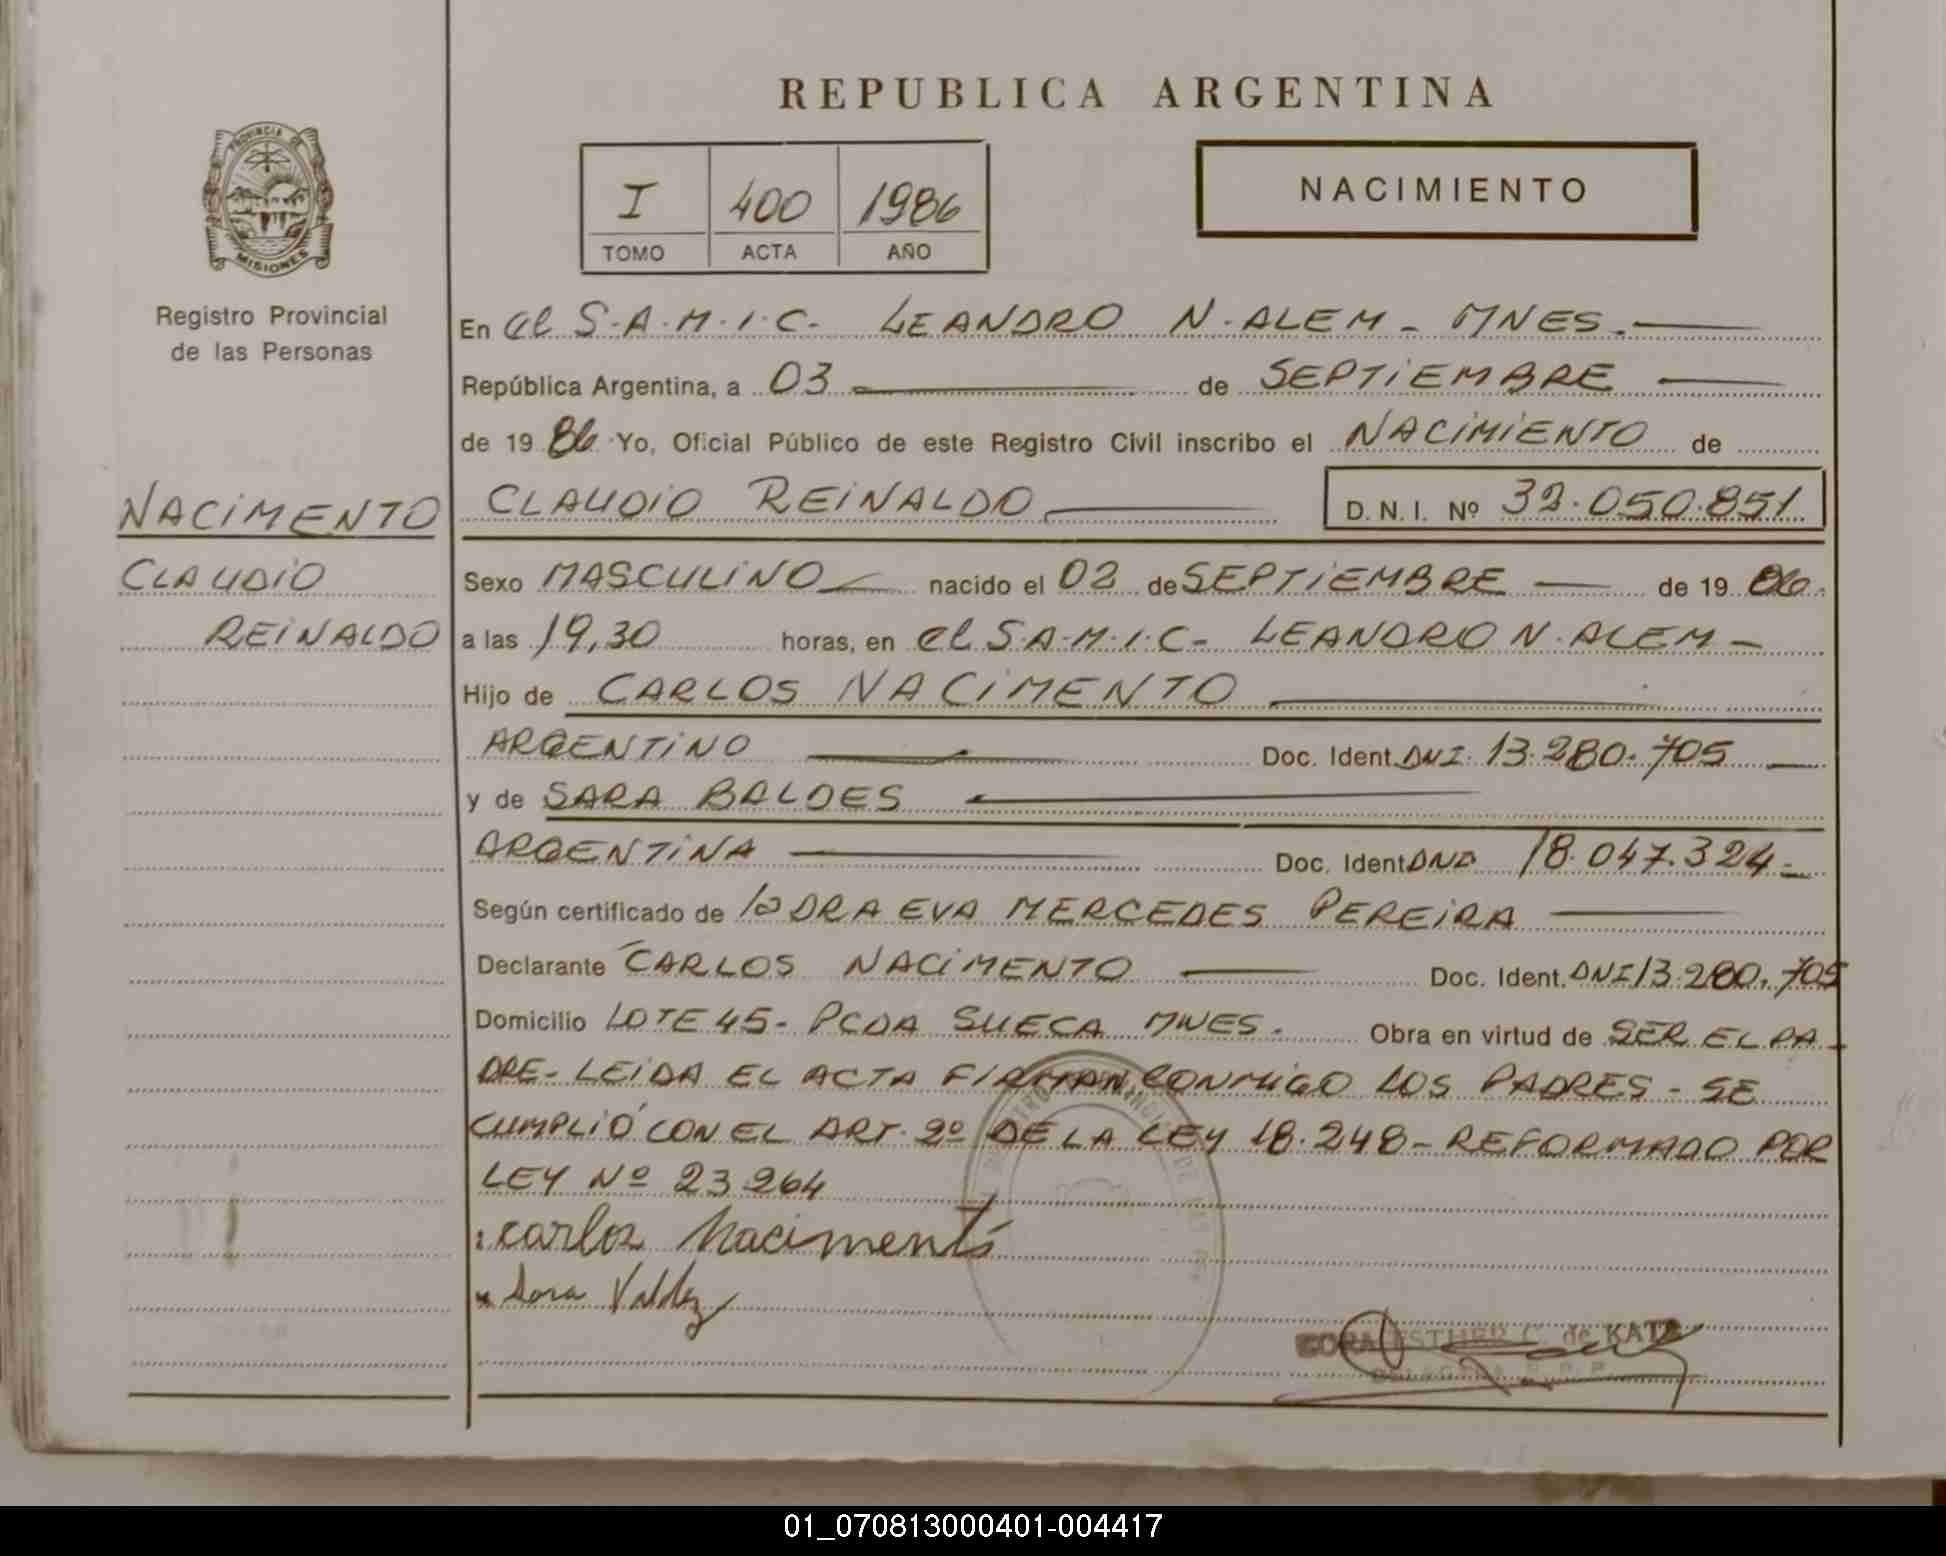 REPUBLICA ARGENTINA
PROVINCIA DE
MISIONES
Registro Provincial
de las Personas
I 400 1986
TOMO ACTA AÑO
NACIMIENTO
En el S.A.M.I.C. LEANDRO N. ALEM - MNES.
República Argentina, a 03 de SEPTIEMBRE
de 19 86 Yo, Oficial Público de este Registro Civil inscribo el NACIMIENTO de
NACIMENTO
CLAUDIO
REINALDO
CLAUDIO REINALDO D. N. I. Nº 32.050.851
Sexo MASCULINO nacido el 02 de SEPTIEMBRE de 19 86.
a las 19,30 horas, en el S.A.M.I.C- LEANDRO N. ALEM -
Hijo de CARLOS NACIMENTO
ARGENTINO Doc. Ident. DNI. 13.280.705
y de SARA BALDES
ARGENTINA Doc. Ident. 18.047.324-
Según certificado de la DRA EVA MERCEDES PEREIRA
Declarante CARLOS NACIMENTO Doc. Ident. DNI 13.280.705
Domicilio LOTE 45- PCDA SUECA MNES. Obra en virtud de SER EL PA-
DRE- LEIDA EL ACTA FIRMAN CONMIGO LOS PADRES - SE
CUMPLIÓ CON EL ART. 2º DE LA LEY 18.248- REFORMADO POR
LEY Nº 23.264
Carlos Nacimento
Sara Valdez
ESTHER C. de KATZ
01_070813000401-004417